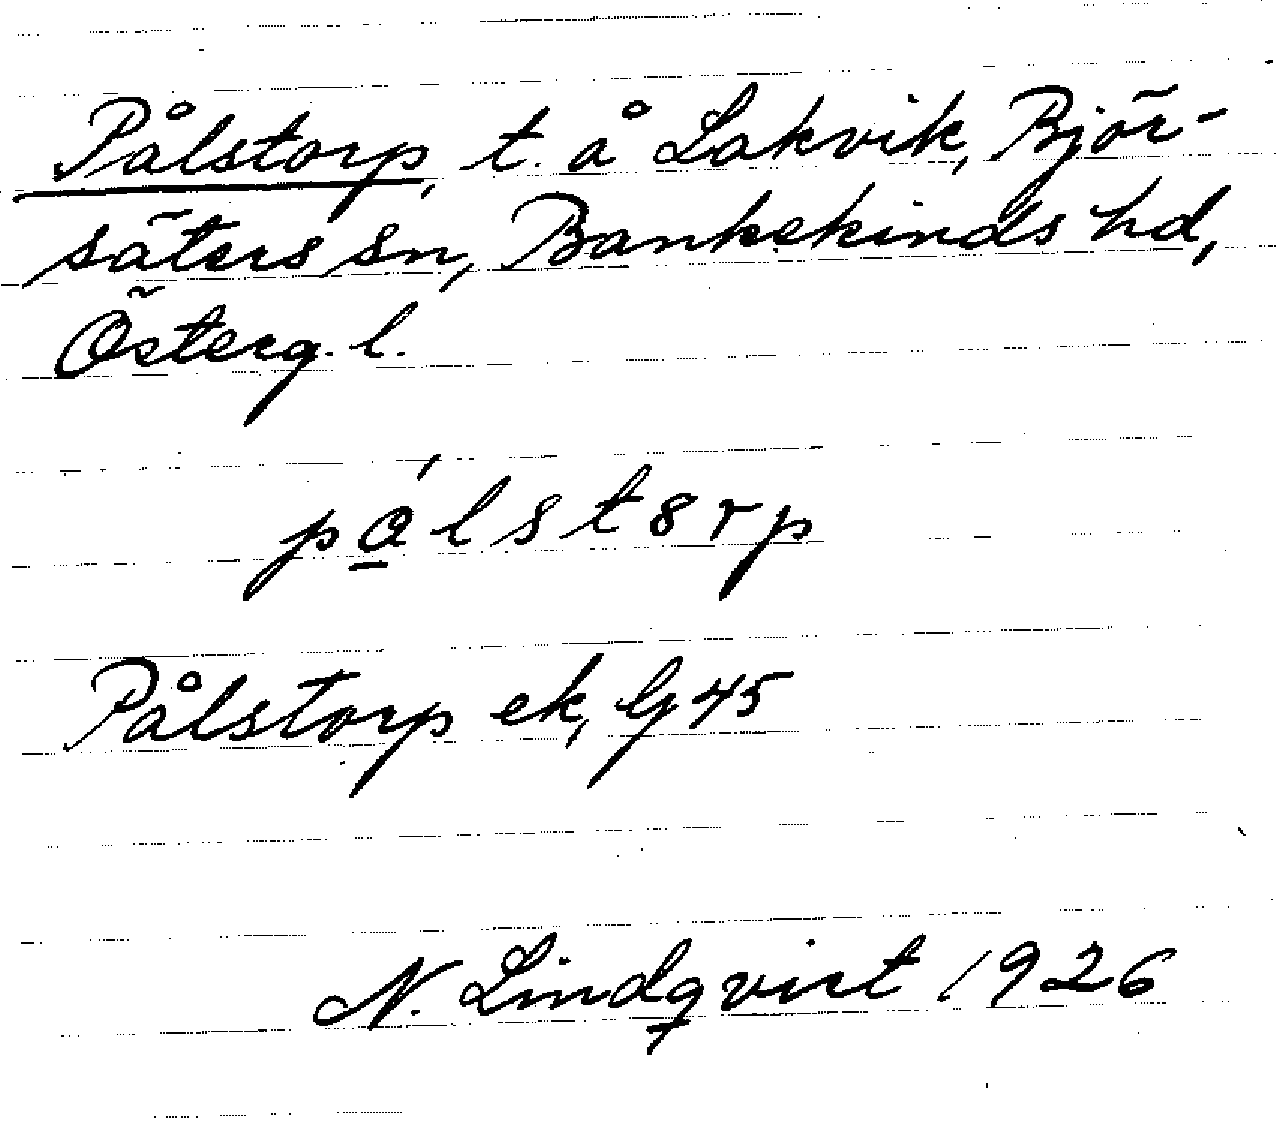 Pålstorp, t. å Lakvik, Björ-
säters sn, Bankekinds hd,
Österg. l.
pá̱lstȣrp
Pålstorp ek, G 45
N. Lindqvist 1926